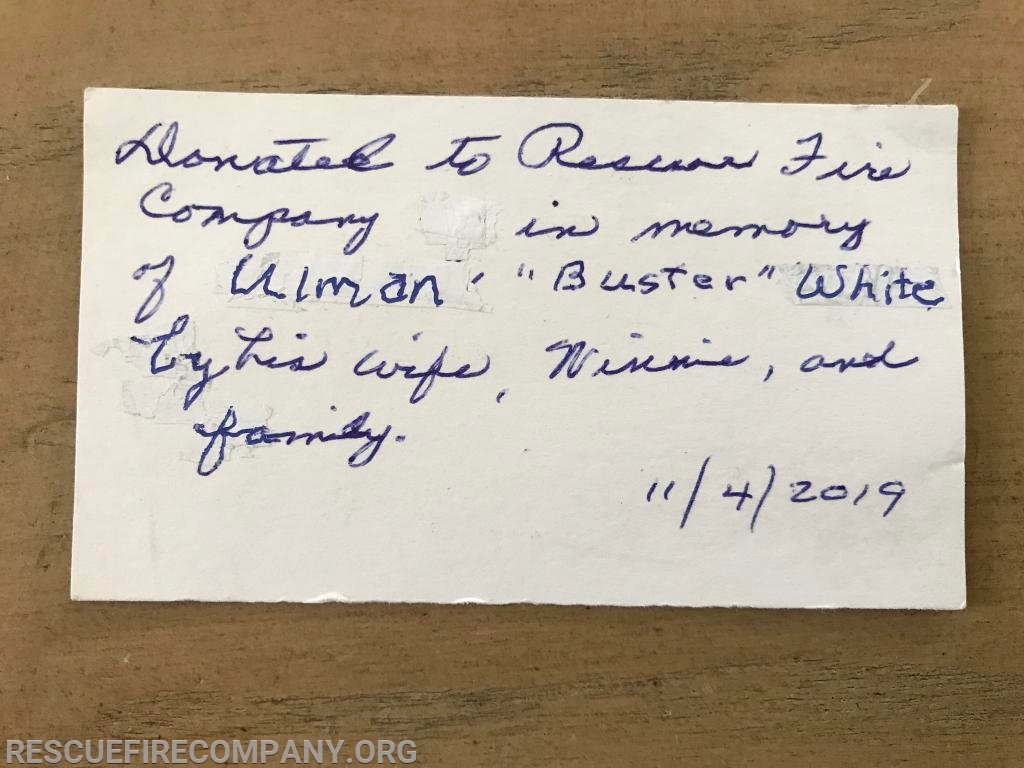 Donated to Rescue Fire
Company in memory
of Ulman "Buster" White
by his wife, Winnie, and
family.
11/4/2019
RESCUEFIRECOMPANY.ORG